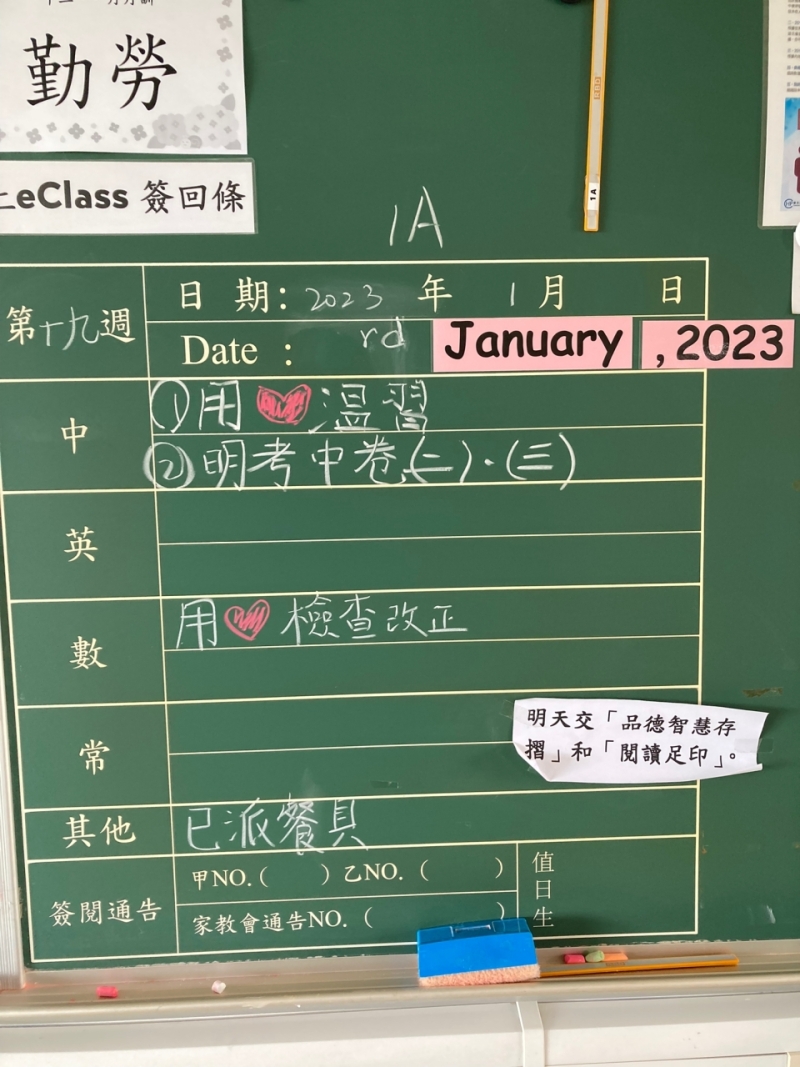 勤勞
eClass 簽回條
1A
1A
第十九週
日 期：2023 年 1月 日
Date : rd January , 2023
中
①用❤溫習
②明考中卷(二)·(三)
英
數
用❤檢查改正
常
明天交「品德智慧存
摺」和「閱讀足印」。
其他
已派餐具
簽閱通告
甲NO.( ) 乙NO. ( )
家教會通告NO. ( )
值日生